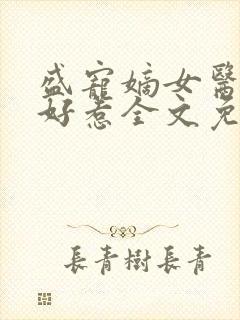 盛寵嫡女醫
好惹全文免
長青樹長青